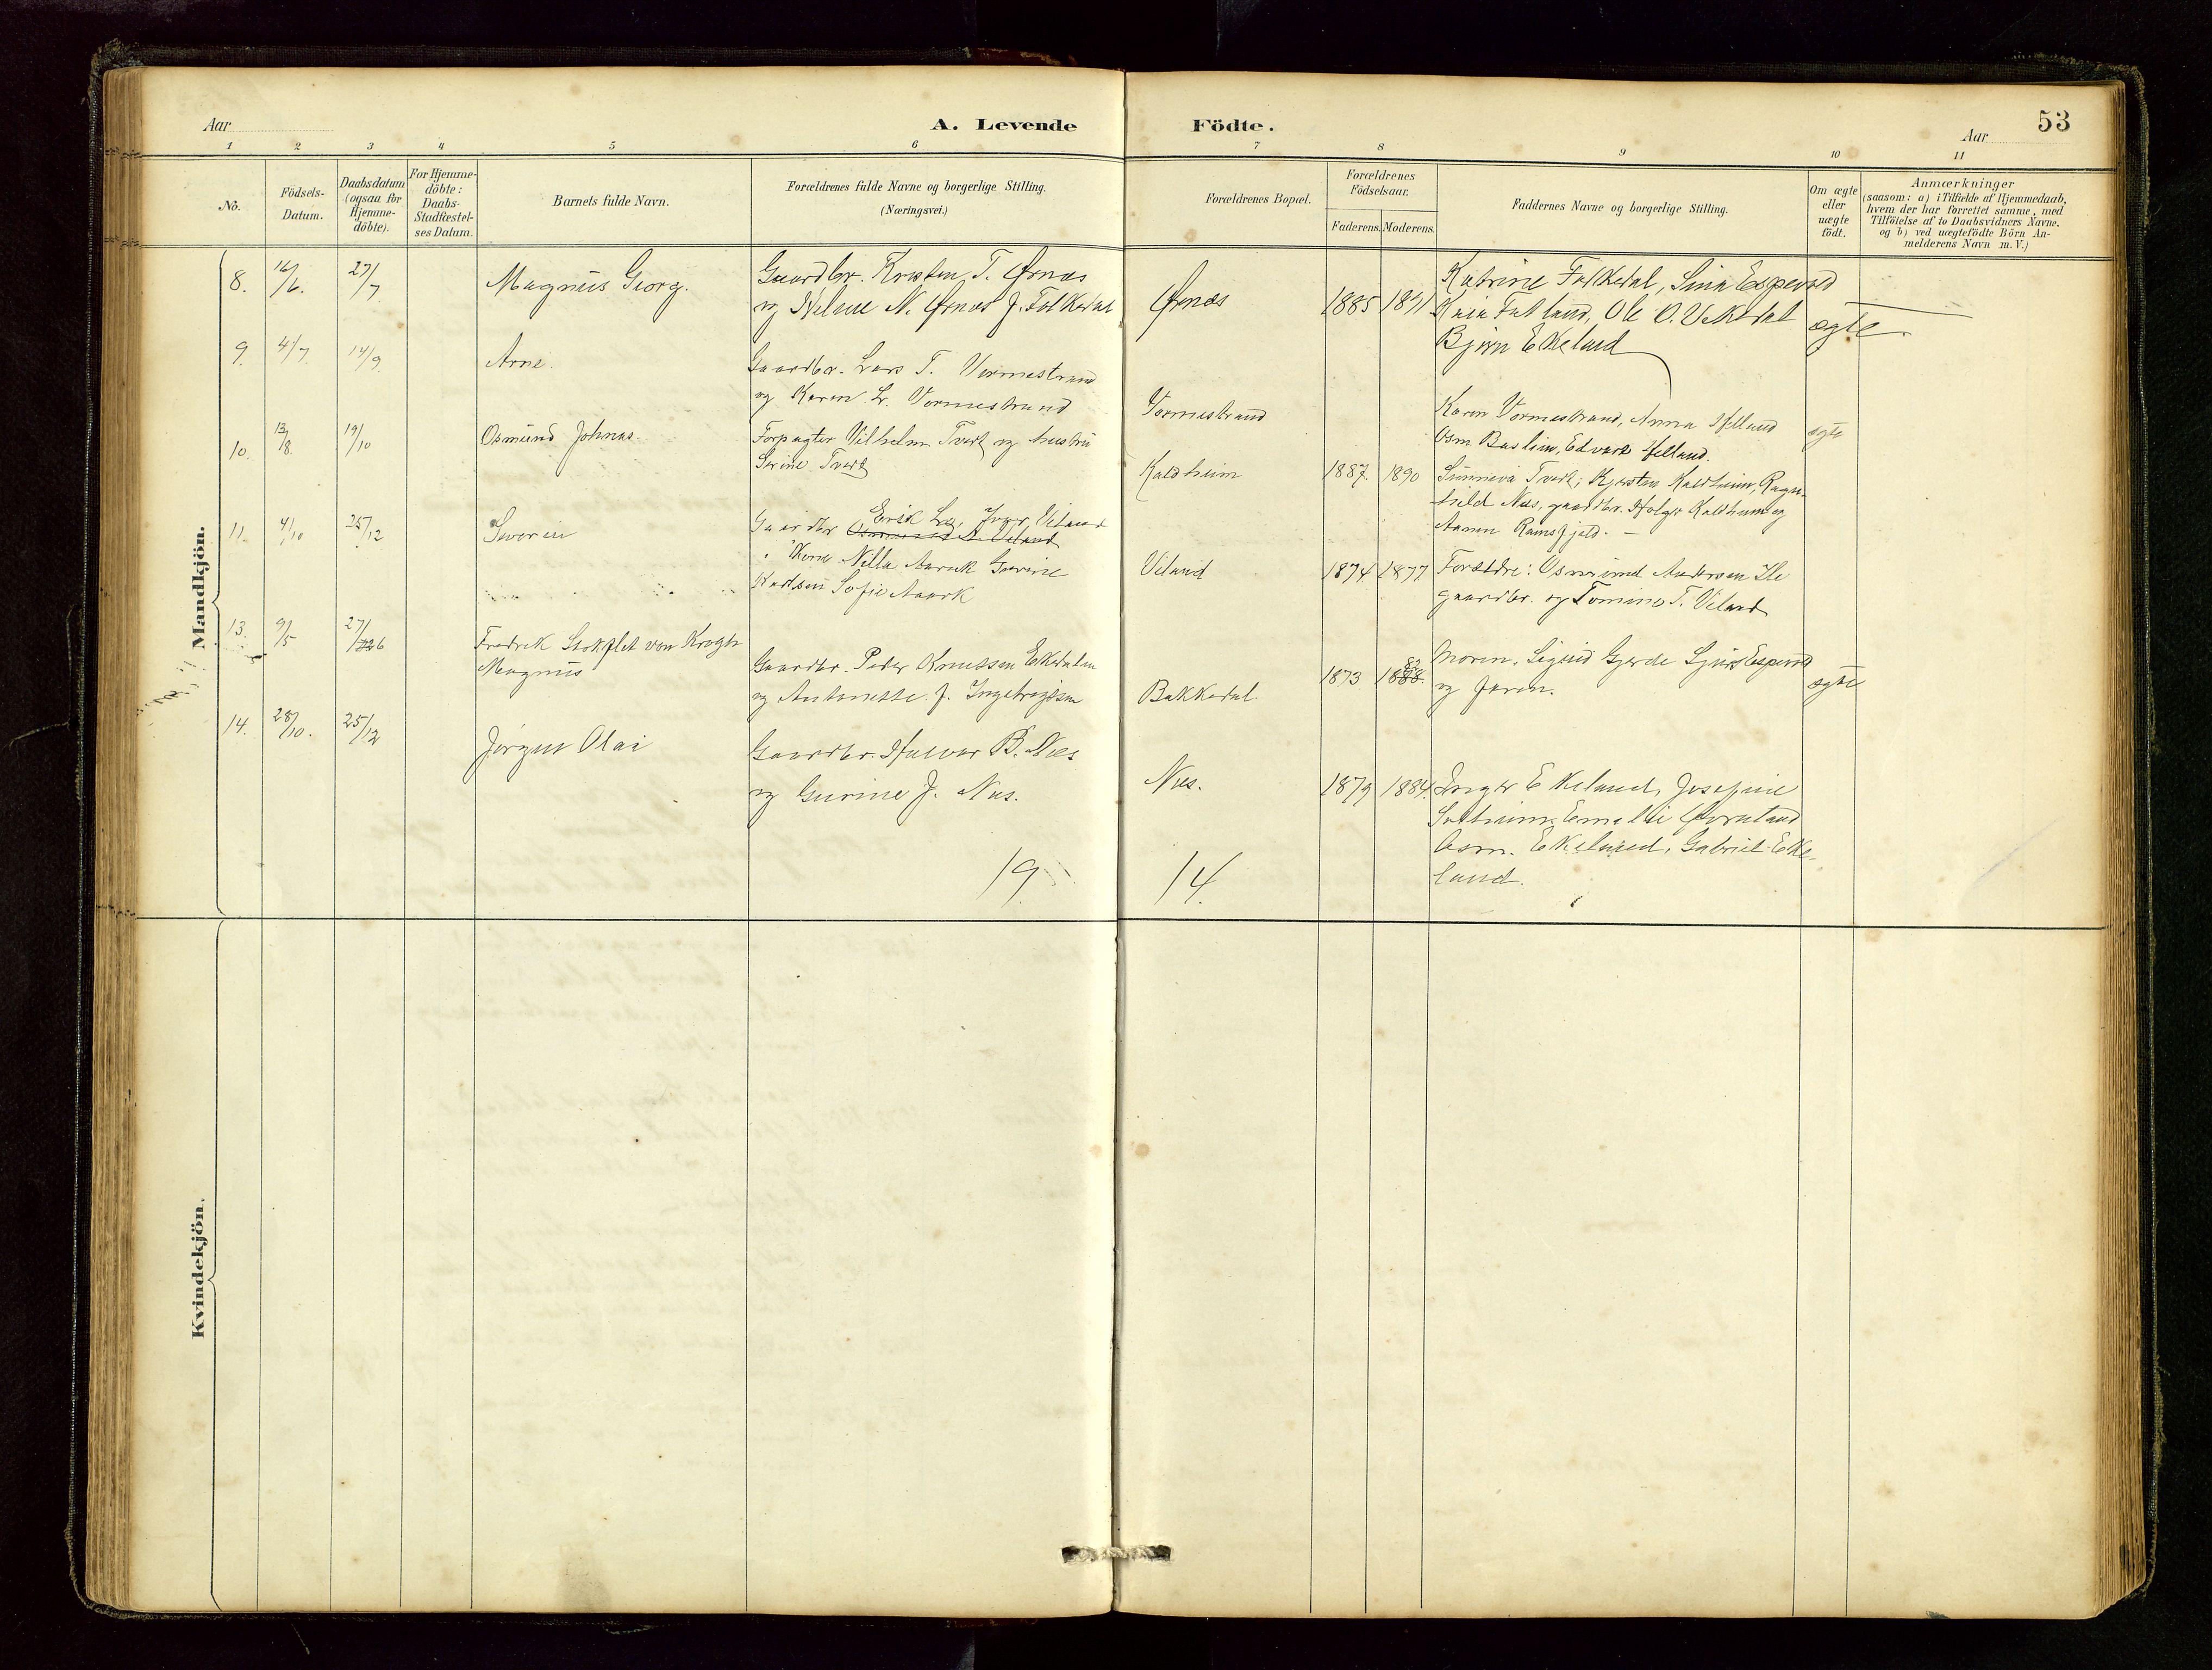 Aar
A. Levende
Födte.
Aar
53
1 2 3 4 5 6 7 8 9 10 11
No.
Födsels-
Datum.
Daabsdatum
(ogsaa for
Hjemme-
döbte).
For Hjemme-
döbte:
Daabs-
Stadfæstel-
ses Datum.
Barnets fulde Navn.
Forældrenes fulde Navne og borgerlige Stilling.
(Næringsvei.)
Forældrenes Bopæl.
Forældrenes
Födselsaar.
Faderens. Moderens.
Faddernes Navne og borgerlige Stilling.
Om ægte
eller
uægte
födt.
Anmærkninger
(saasom: a) i Tilfælde af Hjemmedaab,
hvem der har forrettet samme, med
Tilföielse af to Daabsvidners Navne,
og b) ved uægtefödte Börn An-
melderens Navn m. V.)
Mandkjön.
8. 16/6. 27/7 Magnus Georg.
Gaardbr. Kristen T. Ørnæs
og Helene N. Ørnæs f. Falkedal
Ørnæs
1885 1891
Katrine Falkedal, Sina Espevold
Kaia Fatland, Ole O. Vekedal
Bjørn Ekeland
ægte
9. 4/7. 14/9. Arne.
Gaardbr. Lars T. Vormestrand
og Karen L. Vormestrand
Vormestrand
Karen Vormestrand, Anna Helland
Osm. Bashim, Edvard Helland.
ægte
10. 13/8. 19/10 Osmund Johnas
Forpagter Vilhelm Tveit og hustru
Serine Tveit
Kaldheim
1887. 1890
Sunneva Tveit, Kjersten Kaldheim, Ragn-
hild Næs, gaardbr. Holger Kaldheim og
Aanen Ramsfjeld. —
11. 4/10 25/12 Severin
Gaardbr Erik Lra, Iver, Viland
Osmund A. Viland
Kone Nilla Aarek Gurine
Karlsen Sofie Aaark
Viland
1874 1877
Forældre: Osmund Andersen Ile
gaardbr. og Tomine T. Viland
13. 9/5 27/6 Fredrik Stokflet von Krogh
Magnus
Gaardbr. Peder Knutsen Ekedalen
og Antonette f. Ingebrigtsen
Bakkedal.
1873 1888 82
Moren, Sigrid Gjerde Sjur Espevold
og faren.
ægte
14. 28/10. 25/12 Jørgen Olai
Gaardbr. Halvor B. Næs
og Gurine J. Næs.
Næs.
1879 1884.
Inger Ekeland, Josefine
Soltheim, Emalie Øvreland
Osm. Ekeland, Gabriel Eke-
land.
19
14.
Kvindekjön.